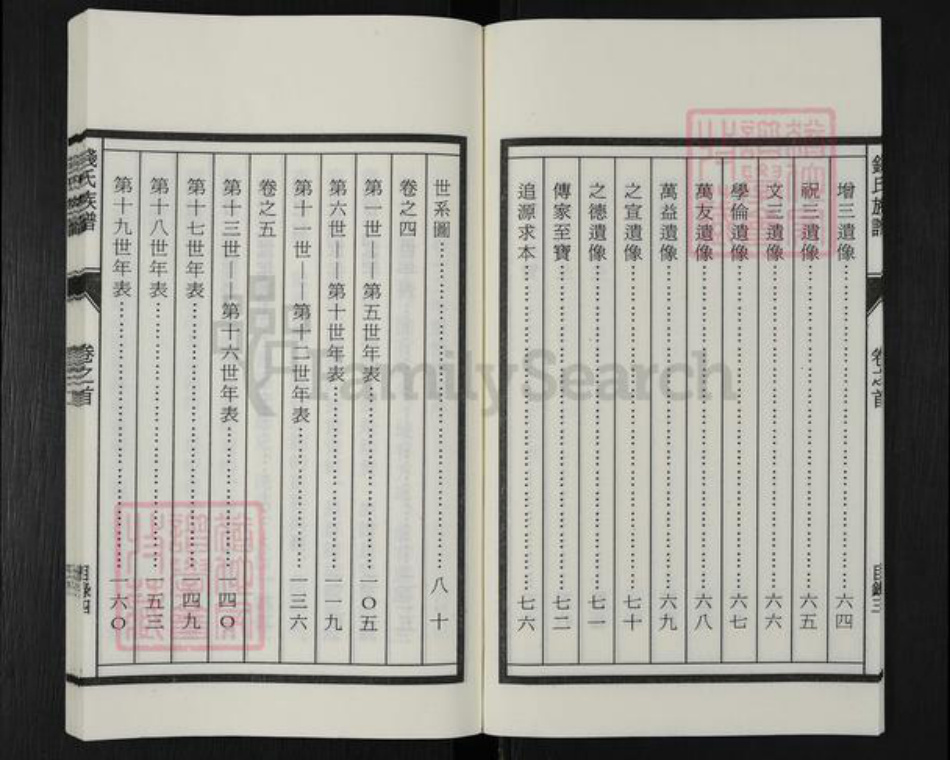 增三遺像……六四
祝三遺像……六五
文三遺像……六六
學倫遺像……六七
萬友遺像……六八
萬益遺像……六九
之宜遺像……七十
之德遺像……七一
傳家至寶……七二
追源求本……七六
卷之首
目錄三
世系圖……八十
卷之四
第一世——第五世年表……一〇五
第六世——第十世年表……一一九
第十一世——第十二世年表……一三六
卷之五
第十三世——第十六世年表……一四〇
第十七世年表……一四九
第十八世年表……一五三
第十九世年表……一六〇
錢氏族譜
卷之首
目錄四
FamilySearch